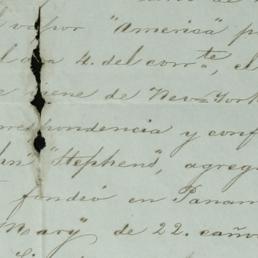 vapor "America" p
dia 4. del corr.te, el
viene de New-York
respondencia y conf
"Stephens", agreg
fondeó en Panam
Mary" de 22. caño